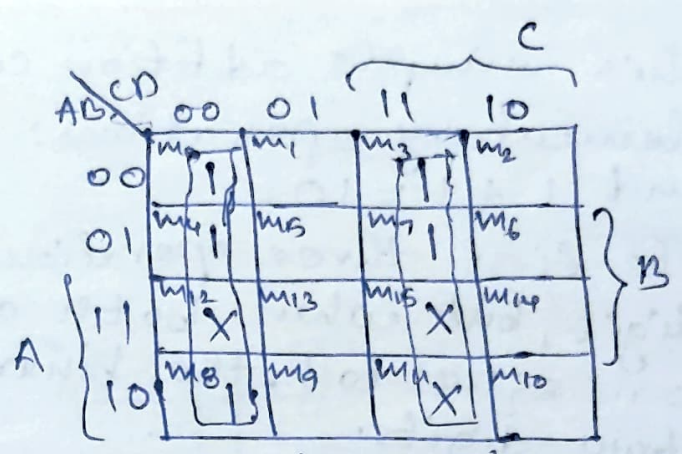 C
AB CD 00 01 11 10
00 m0 1 m1 m3 1 m2
01 m4 1 m5 m7 1 m6
B
A
11 m12 X m13 m15 X m14
10 m8 1 m9 m11 X m10